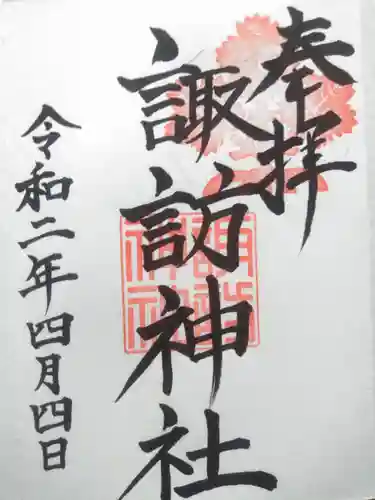 奉拝
諏訪神社
諏訪神社
令和二年四月四日